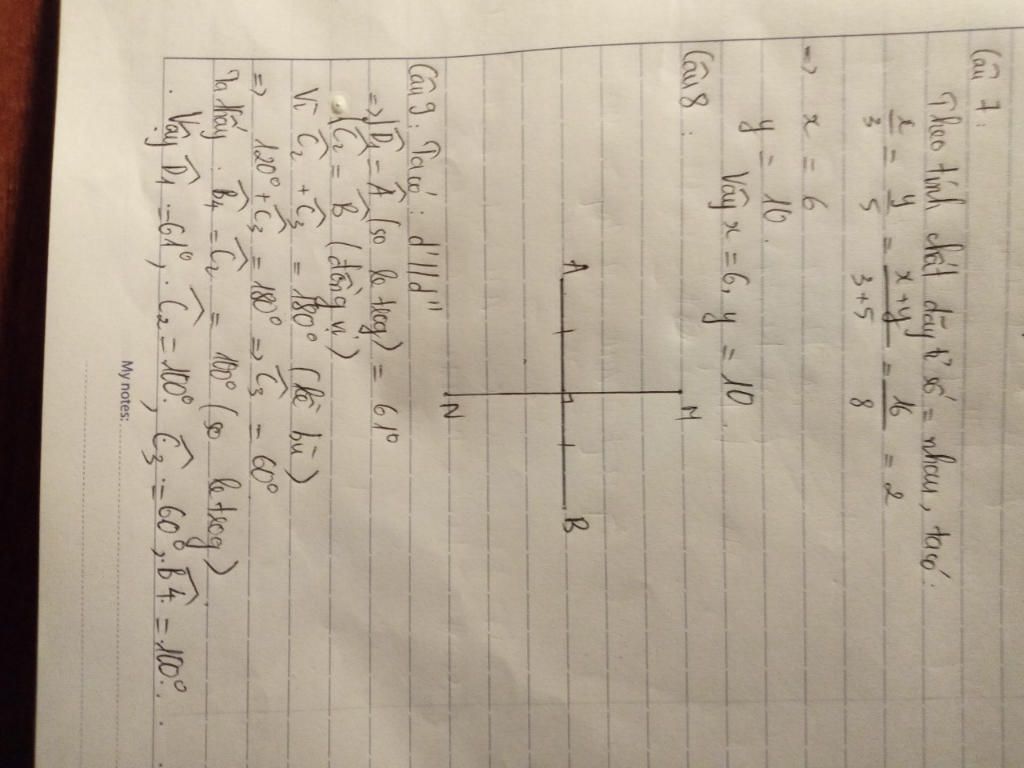 Câu 7:
Theo tính chất dãy tỉ số = nhau, ta có:
x/3 = y/5 = x+y/3+5 = 16/8 = 2
=> x = 6
y = 10.
Vậy x = 6, y = 10.
Câu 8:
M
A B
N
Câu 9: Ta có: d'//d"
=> D1 = A (so le trog) = 61°
=> C2 = B (đồng vị)
Vì C2 + C3 = 180° (kề bù)
=> 120° + C3 = 180° => C3 = 60°
Ta thấy: B4 = C2 = 100° (so le trog)
Vậy D1 = 61°, C2 = 100°, C3 = 60°, B4 = 100°.
My notes: